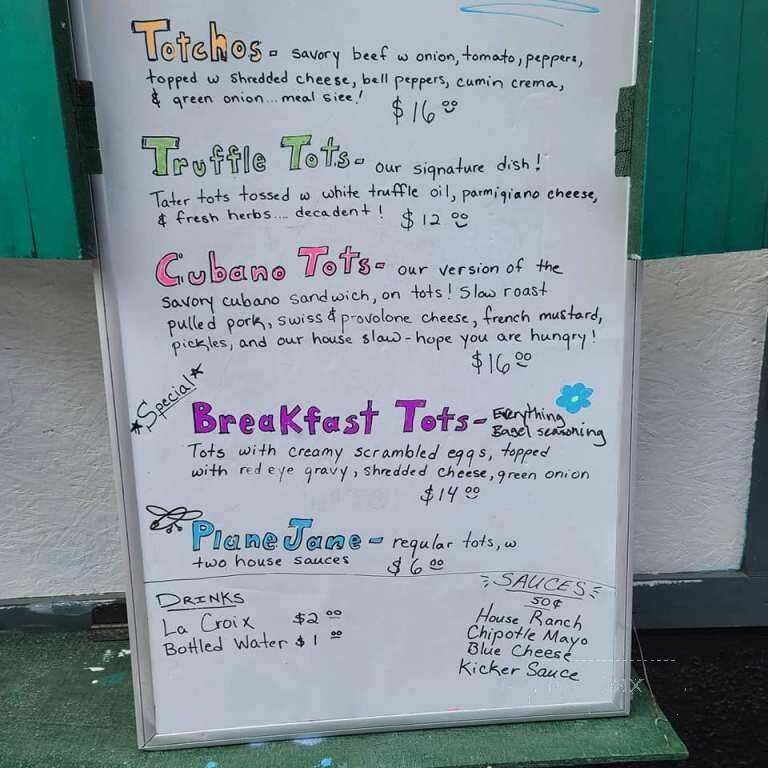 Totchos - savory beef w onion, tomato, peppers,
topped w shredded cheese, bell peppers, cumin crema,
& green onion... meal size! $16 00
Truffle Tots - our signature dish!
Tater tots tossed w white truffle oil, parmigiano cheese,
& fresh herbs.... decadent! $12 00
Cubano Tots - our version of the
savory cubano sandwich, on tots! Slow roast
pulled pork, swiss & provolone cheese, french mustard,
pickles, and our house slaw - hope you are hungry!
$16 00
Special
Breakfast Tots - Everything
Bagel seasoning
Tots with creamy scrambled eggs, topped
with red eye gravy, shredded cheese, green onion
$14 00
Plane Jane - regular tots, w
two house sauces $6 00
DRINKS
La Croix $2 00
Bottled Water $1 00
SAUCES
50¢
House Ranch
Chipotle Mayo
Blue Cheese
Kicker Sauce